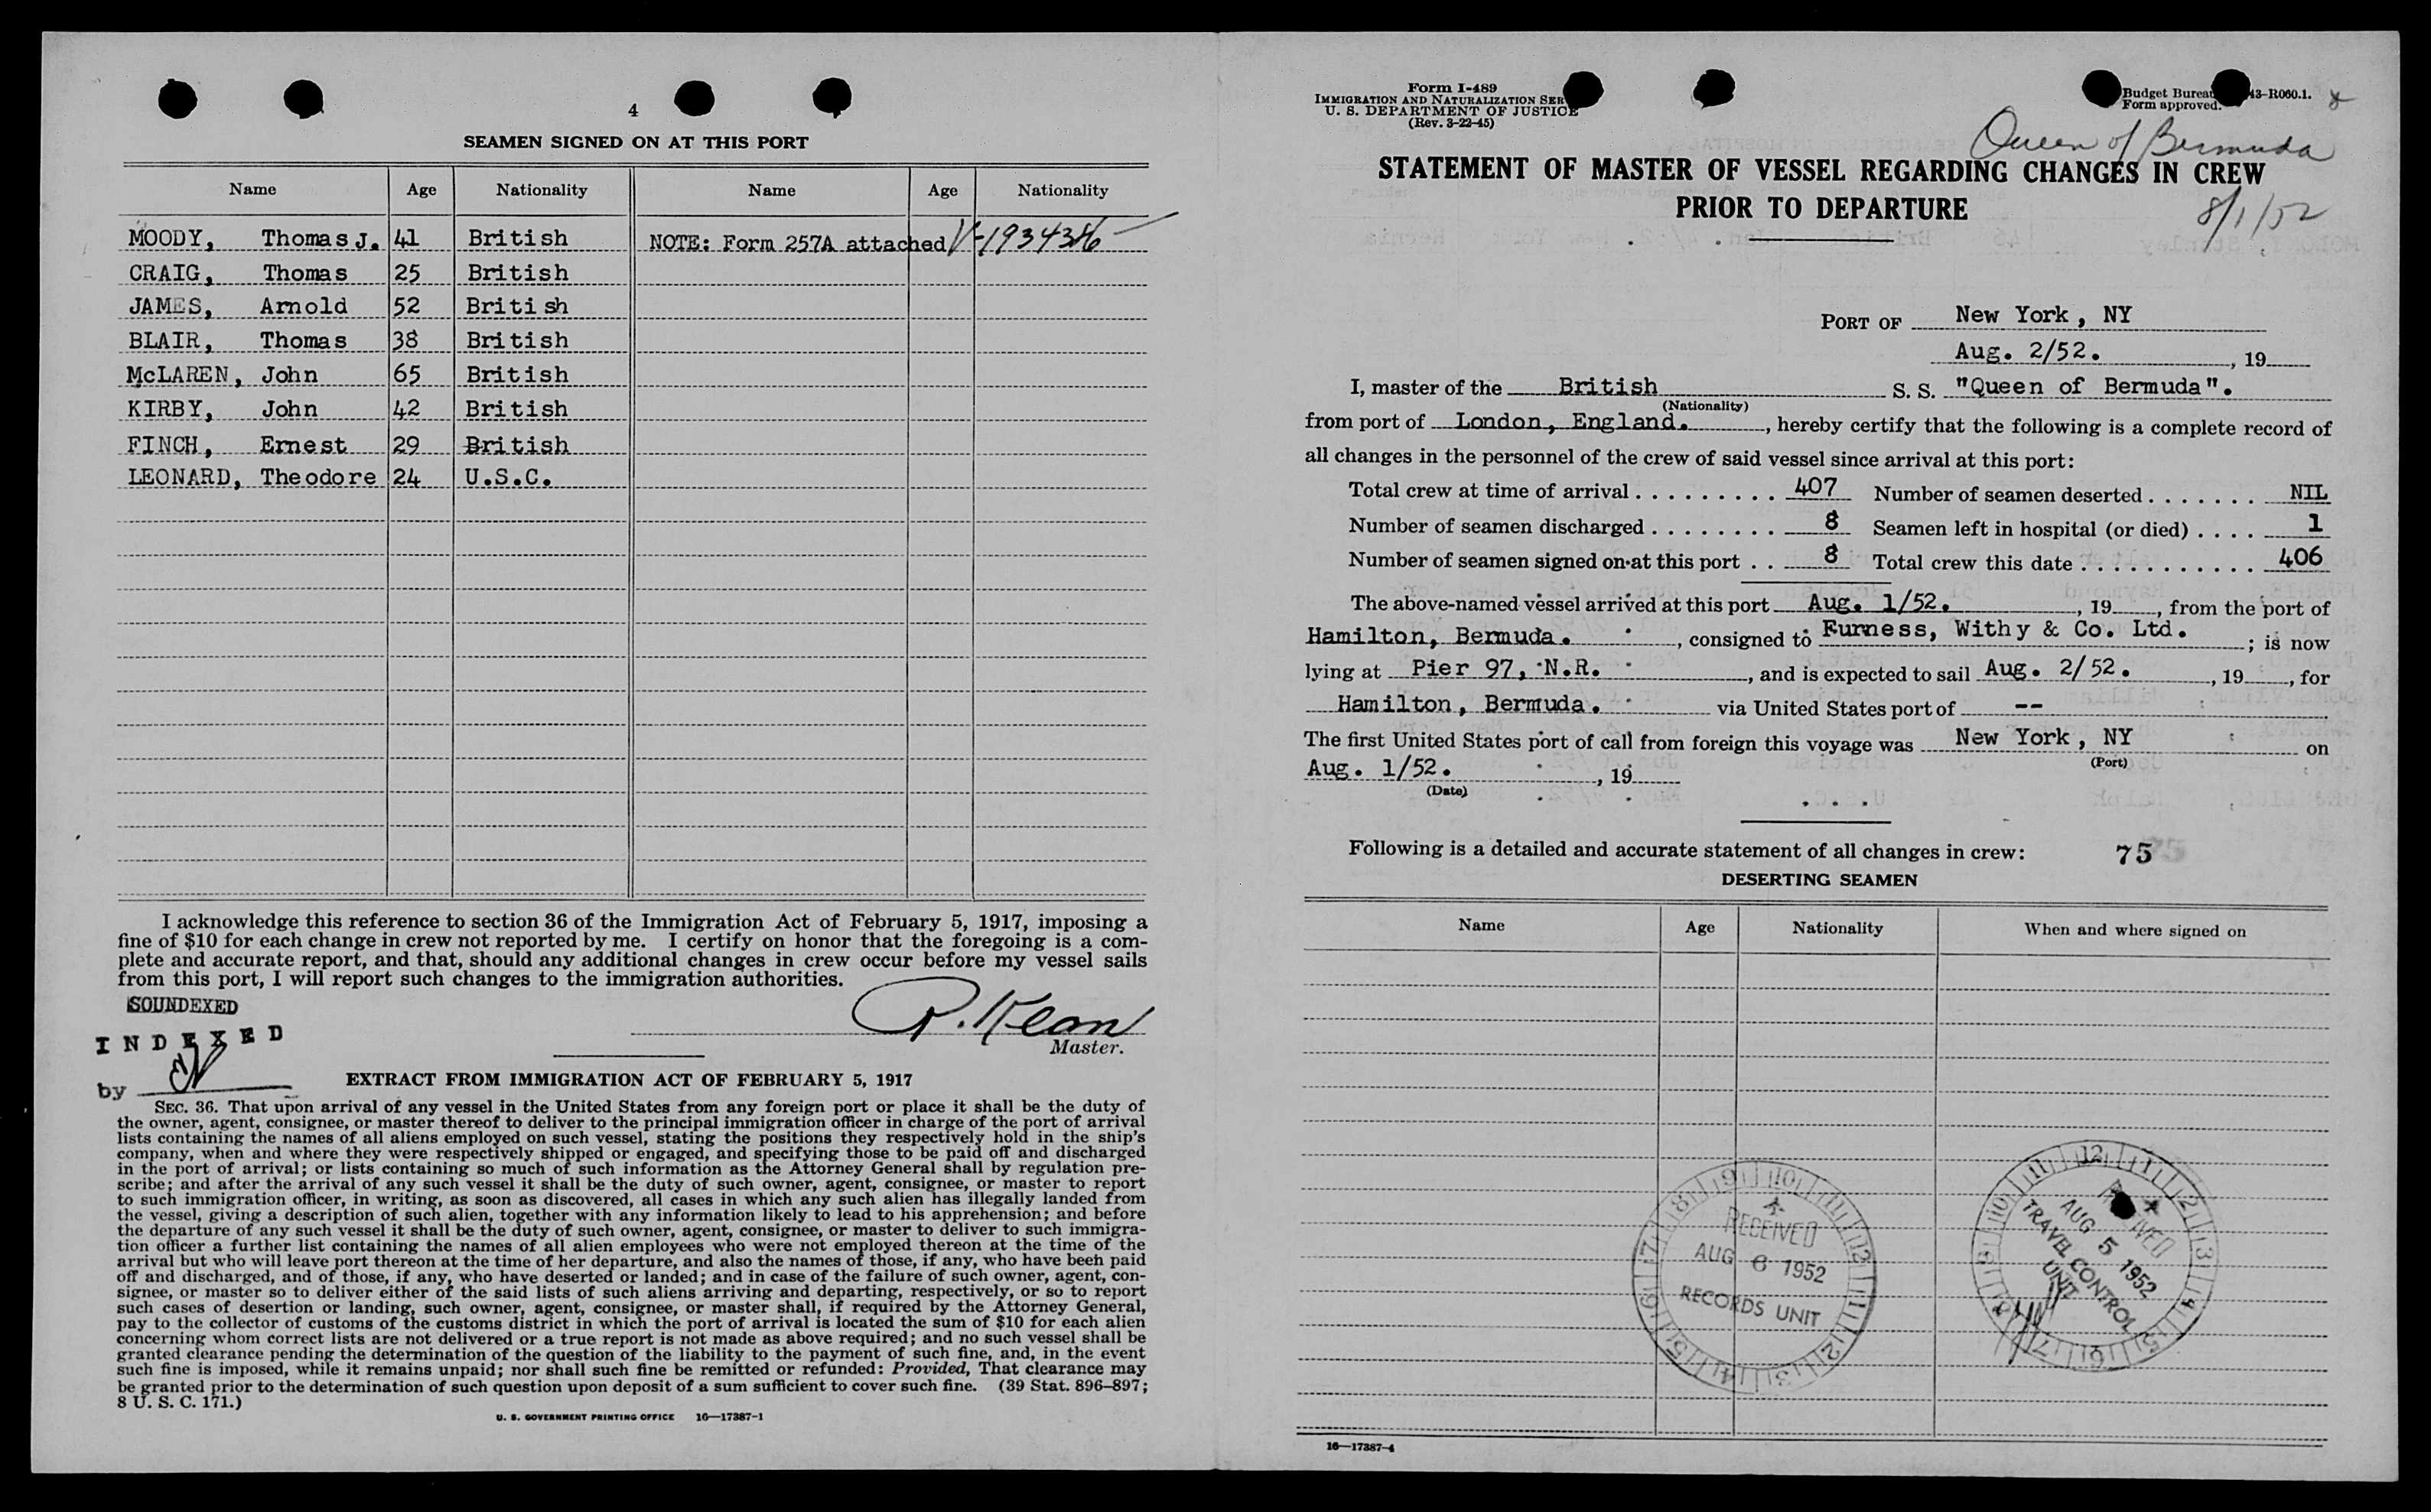 4
SEAMEN SIGNED ON AT THIS PORT
Name Age Nationality Name Age Nationality
MOODY, Thomas J. 41 British NOTE: Form 257A attached V-1934386
CRAIG, Thomas 25 British
JAMES, Arnold 52 British
BLAIR, Thomas 38 British
McLAREN, John 65 British
KIRBY, John 42 British
FINCH, Ernest 29 British
LEONARD, Theodore 24 U.S.C.
I acknowledge this reference to section 36 of the Immigration Act of February 5, 1917, imposing a
fine of $10 for each change in crew not reported by me. I certify on honor that the foregoing is a com-
plete and accurate report, and that, should any additional changes in crew occur before my vessel sails
from this port, I will report such changes to the immigration authorities.
SOUNDEXED
R. Kean
INDEXED
Master.
by
EXTRACT FROM IMMIGRATION ACT OF FEBRUARY 5, 1917
SEC. 36. That upon arrival of any vessel in the United States from any foreign port or place it shall be the duty of
the owner, agent, consignee, or master thereof to deliver to the principal immigration officer in charge of the port of arrival
lists containing the names of all aliens employed on such vessel, stating the positions they respectively hold in the ship's
company, when and where they were respectively shipped or engaged, and specifying those to be paid off and discharged
in the port of arrival; or lists containing so much of such information as the Attorney General shall by regulation pre-
scribe; and after the arrival of any such vessel it shall be the duty of such owner, agent, consignee, or master to report
to such immigration officer, in writing, as soon as discovered, all cases in which any such alien has illegally landed from
the vessel, giving a description of such alien, together with any information likely to lead to his apprehension; and before
the departure of any such vessel it shall be the duty of such owner, agent, consignee, or master to deliver to such immigra-
tion officer a further list containing the names of all alien employees who were not employed thereon at the time of the
arrival but who will leave port thereon at the time of her departure, and also the names of those, if any, who have been paid
off and discharged, and of those, if any, who have deserted or landed; and in case of the failure of such owner, agent, con-
signee, or master so to deliver either of the said lists of such aliens arriving and departing, respectively, or so to report
such cases of desertion or landing, such owner, agent, consignee, or master shall, if required by the Attorney General,
pay to the collector of customs of the customs district in which the port of arrival is located the sum of $10 for each alien
concerning whom correct lists are not delivered or a true report is not made as above required; and no such vessel shall be
granted clearance pending the determination of the question of the liability to the payment of such fine, and, in the event
such fine is imposed, while it remains unpaid; nor shall such fine be remitted or refunded: Provided, That clearance may
be granted prior to the determination of such question upon deposit of a sum sufficient to cover such fine. (39 Stat. 896–897;
8 U. S. C. 171.)
U. S. GOVERNMENT PRINTING OFFICE 16—17387-1
Form I-489
IMMIGRATION AND NATURALIZATION SER
U. S. DEPARTMENT OF JUSTICE
(Rev. 3-22-45)
Budget Bureau 43-R060.1.
Form approved.
Queen of Bermuda
STATEMENT OF MASTER OF VESSEL REGARDING CHANGES IN CREW
PRIOR TO DEPARTURE
8/1/52
PORT OF New York, NY
Aug. 2/52. , 19
I, master of the British S. S. "Queen of Bermuda".
(Nationality)
from port of London, England. , hereby certify that the following is a complete record of
all changes in the personnel of the crew of said vessel since arrival at this port:
Total crew at time of arrival . . . . . . . . . 407 Number of seamen deserted . . . . . . . NIL
Number of seamen discharged . . . . . . . . 8 Seamen left in hospital (or died) . . . . 1
Number of seamen signed on at this port . . 8 Total crew this date . . . . . . . . . . . 406
The above-named vessel arrived at this port Aug. 1/52. , 19 , from the port of
Hamilton, Bermuda. , consigned to Furness, Withy & Co. Ltd. ; is now
lying at Pier 97, N.R. , and is expected to sail Aug. 2/52. , 19 , for
Hamilton, Bermuda. via United States port of --
The first United States port of call from foreign this voyage was New York, NY on
(Port)
Aug. 1/52. , 19
(Date)
Following is a detailed and accurate statement of all changes in crew: 75
DESERTING SEAMEN
Name Age Nationality When and where signed on
RECEIVED
AUG 6 1952
RECORDS UNIT
AUG 5 1952
TRAVEL CONTROL
UNIT
16—17387-4